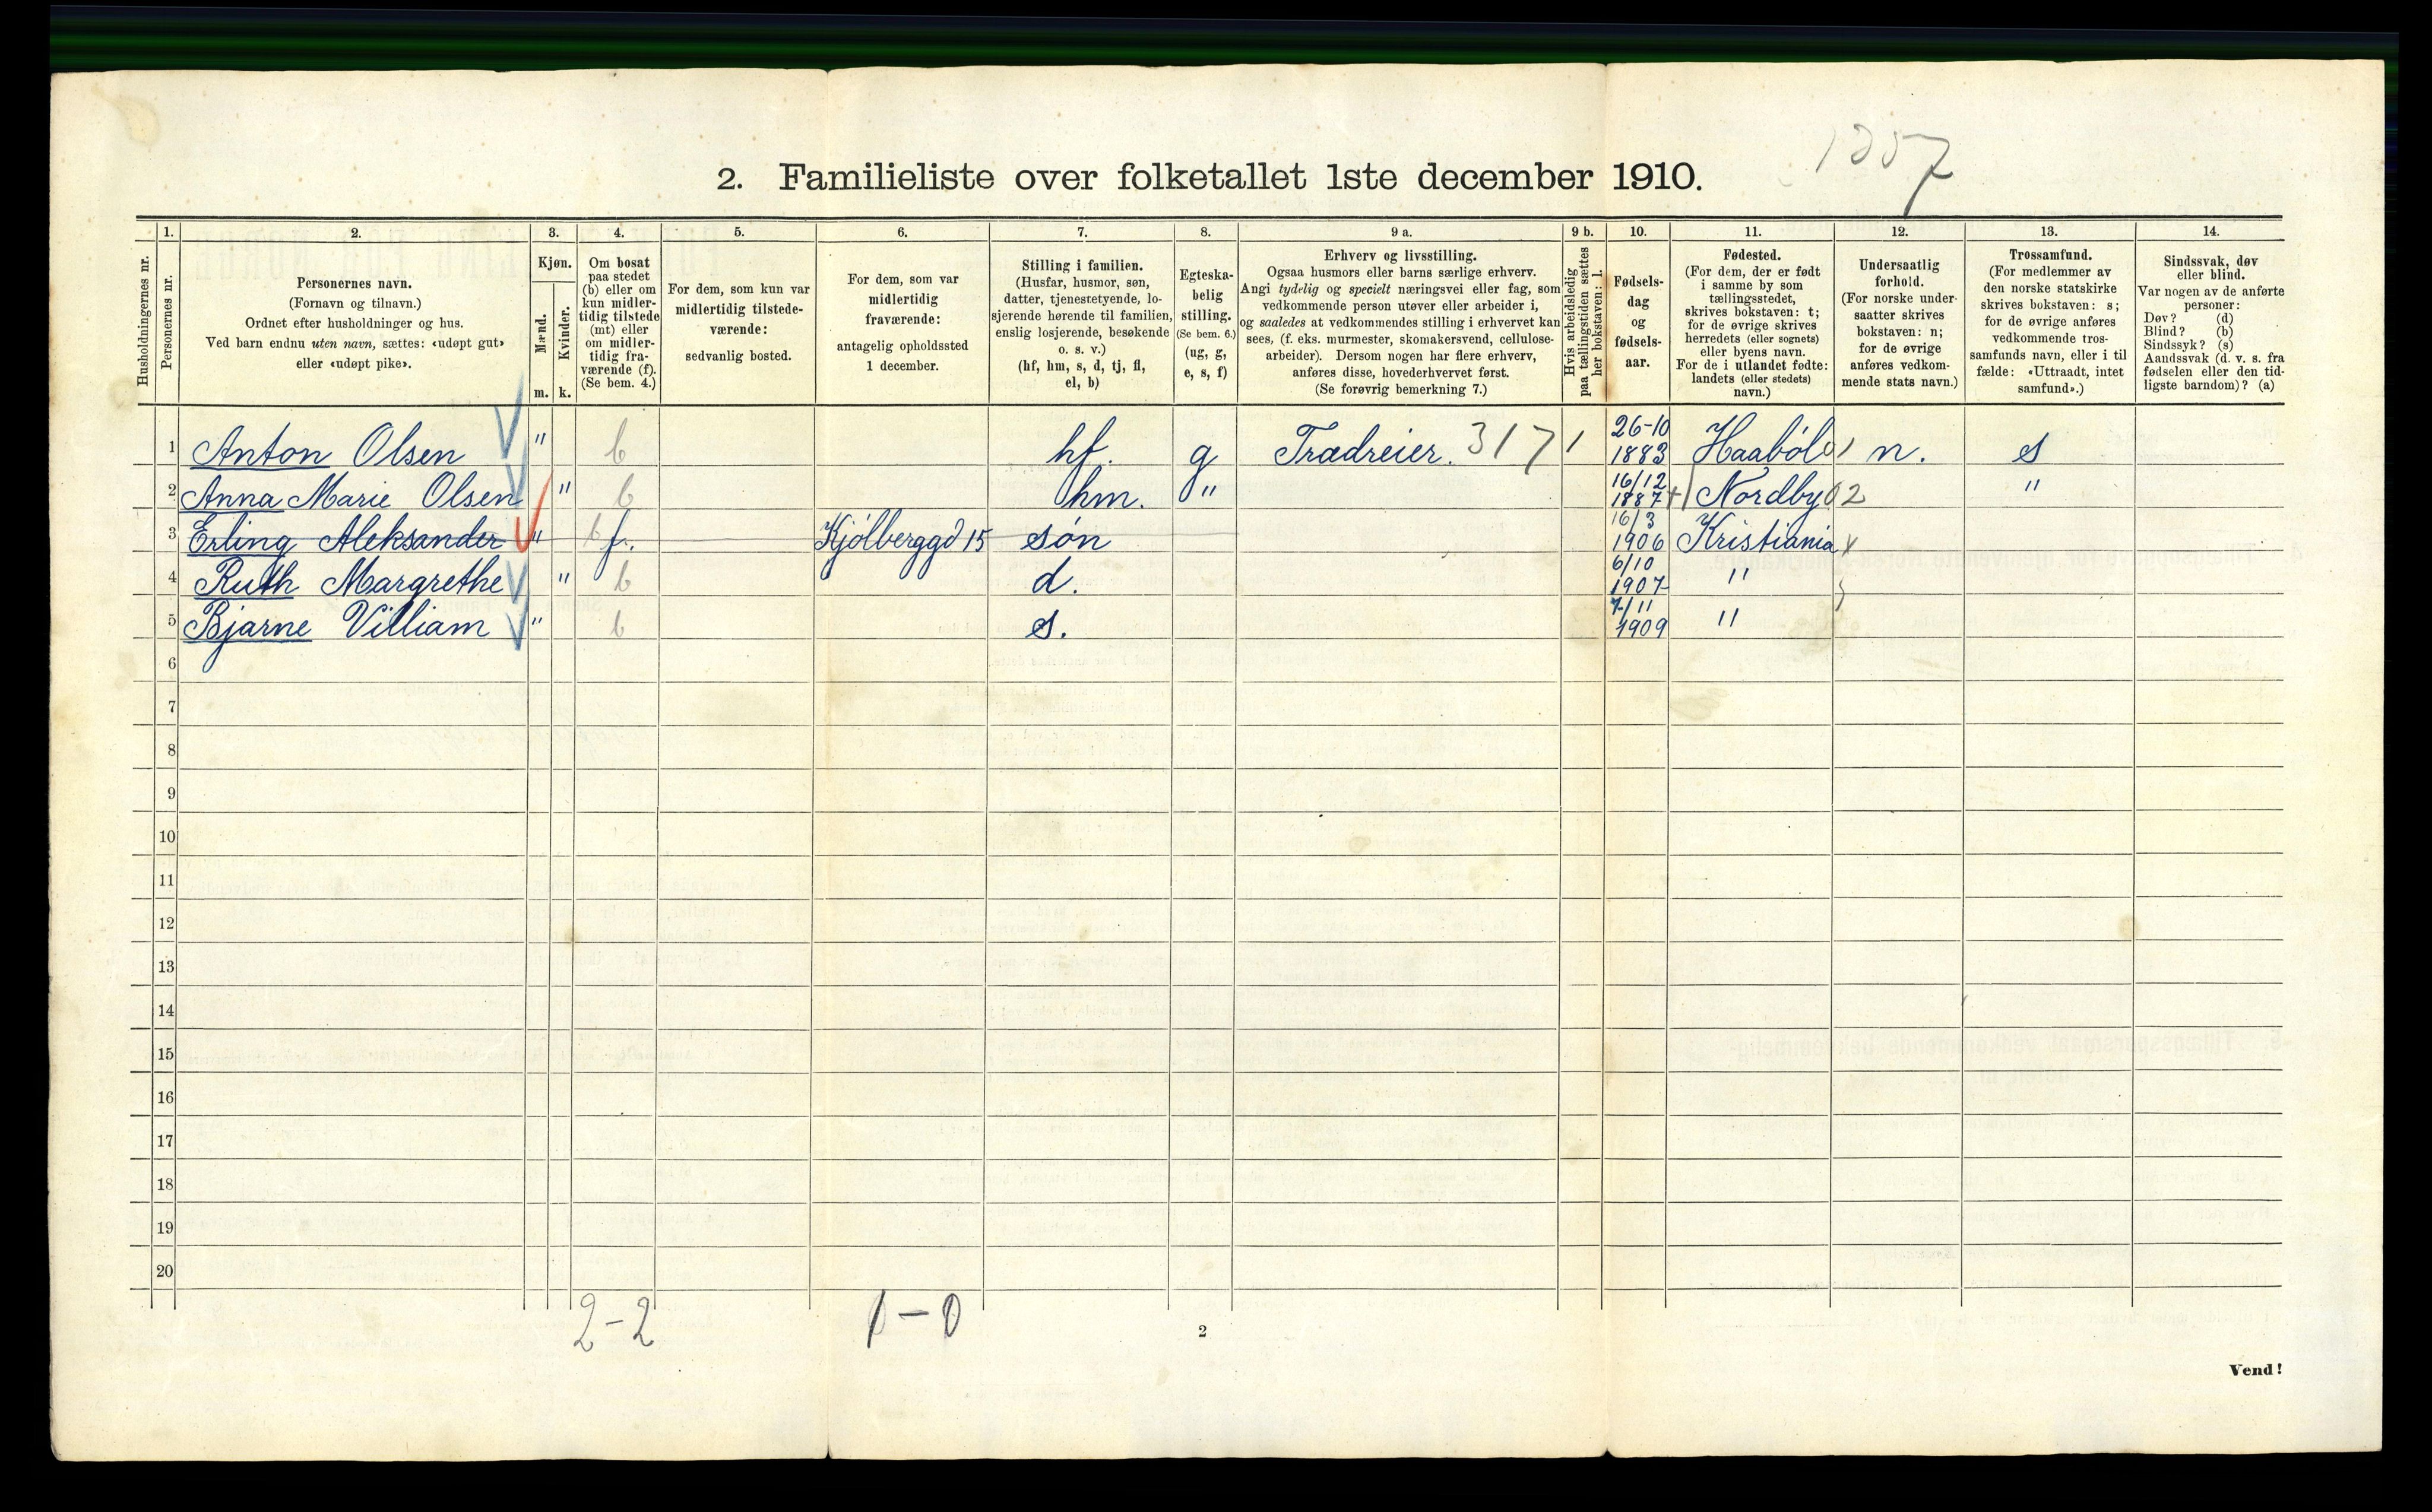 1357
2. Familieliste over folketallet 1ste december 1910.
Husholdningernes nr.
1.
Personernes nr.
2.
Personernes navn.
(Fornavn og tilnavn.)
Ordnet efter husholdninger og hus.
Ved barn endnu uten navn, sættes: «udøpt gut»
eller «udøpt pike».
3.
Kjøn.
Mænd.
Kvinder.
m. k.
4.
Om bosat
paa stedet
(b) eller om
kun midler-
tidig tilstede
(mt) eller
om midler-
tidig fra-
værende (f).
(Se bem. 4.)
5.
For dem, som kun var
midlertidig tilstede-
værende:
sedvanlig bosted.
6.
For dem, som var
midlertidig
fraværende:
antagelig opholdssted
1 december.
7.
Stilling i familien.
(Husfar, husmor, søn,
datter, tjenestetyende, lo-
sjerende hørende til familien,
enslig losjerende, besøkende
o. s. v.)
(hf, hm, s, d, tj, fl,
el, b)
8.
Egteska-
belig
stilling.
(Se bem. 6.)
(ug, g,
e, s, f)
9 a.
Erhverv og livsstilling.
Ogsaa husmors eller barns særlige erhverv.
Angi tydelig og specielt næringsvei eller fag, som
vedkommende person utøver eller arbeider i,
og saaledes at vedkommendes stilling i erhvervet kan
sees, (f. eks. murmester, skomakersvend, cellulose-
arbeider). Dersom nogen har flere erhverv,
anføres disse, hovederhvervet først.
(Se forøvrig bemerkning 7.)
9 b.
Hvis arbeidsledig
paa tællingstiden sættes
her bokstaven: l.
10.
Fødsels-
dag
og
fødsels-
aar.
11.
Fødested.
(For dem, der er født
i samme by som
tællingsstedet,
skrives bokstaven: t;
for de øvrige skrives
herredets (eller sognets)
eller byens navn.
For de i utlandet fødte:
landets (eller stedets)
navn.)
12.
Undersaatlig
forhold.
(For norske under-
saatter skrives
bokstaven: n;
for de øvrige
anføres vedkom-
mende stats navn.)
13.
Trossamfund.
(For medlemmer av
den norske statskirke
skrives bokstaven: s;
for de øvrige anføres
vedkommende tros-
samfunds navn, eller i til
fælde: «Uttraadt, intet
samfund».)
14.
Sindssvak, døv
eller blind.
Var nogen av de anførte
personer:
Døv? (d)
Blind? (b)
Sindssyk? (s)
Aandssvak (d. v. s. fra
fødselen eller den tid-
ligste barndom)? (a)
1 Anton Olsen " b hf. g Trædreier. 317 1 26-10 1883 Haaból 01 n. s
2 Anna Marie Olsen " b hm. " 16/12 1887 Nordby 02 "
3 Erling Aleksander " b f. Kjólberggd 15 søn 16/3 1906 Kristiania x
4 Ruth Margrethe " b d. 6/10 1907 "
5 Bjarne Villiam " b s. 7/11 1909 "
6
7
8
9
10
11
12
13
14
15
16
17
18
19
20
2-2 1-0
2
Vend!